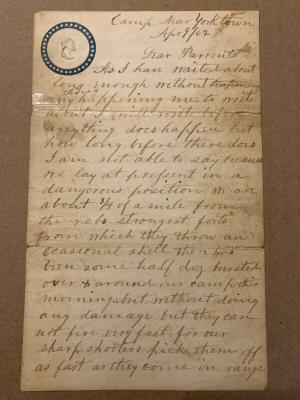 Camp Near Yorktown
Apr 9/62
Dear Parrents
As I have waited about
long enough without
any happening me to write
about I will write before
anything does happen but
how long before there does
I am not able to say because
we lay at present in a
dangerous position we are
about 3/4 of a mile from
the rebs strongest forts
from which they throw an
ocasional shell ther has
bien some half doz bursted
over & around our camp this
morning, but without doing
any damage but they can
not fire very fast for our
sharp shooters pick them off
as fast as they come in range